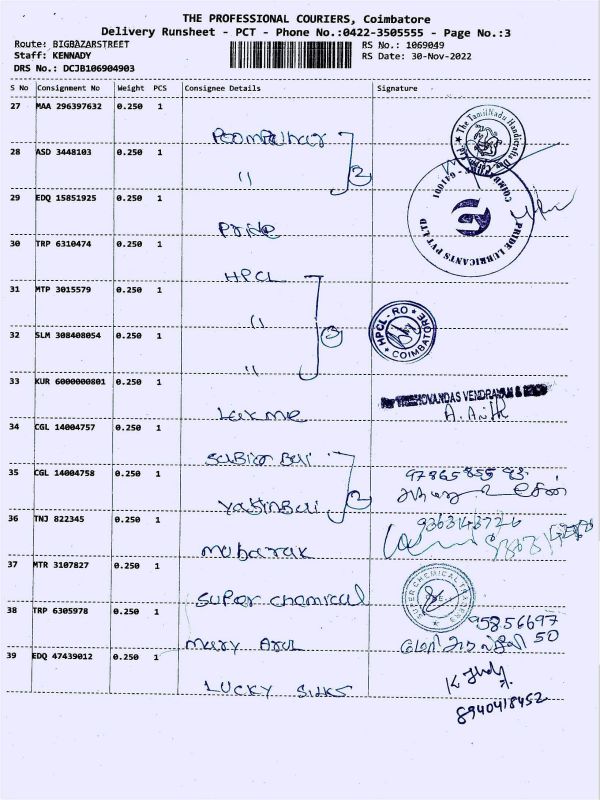 THE PROFESSIONAL COURIERS, Coimbatore
Delivery Runsheet - PCT - Phone No.:0422-3505555 - Page No.:3
Route: BIGBAZARSTREET
RS No.: 1069049
Staff: KENNADY
RS Date: 30-Nov-2022
DRS No.: DCJB106904903
S No Consignment No Weight PCS Consignee Details Signature
27 MAA 296397632 0.250 1
Poompuhar
The TamilNadu Handicrafts Dev
28 ASD 3448103 0.250 1
" 2
29 EDQ 15851925 0.250 1
Pride
PRIDE LUBRICANTS PVT LTD COIMB - 641001
30 TRP 6310474 0.250 1
HPCL
31 MTP 3015579 0.250 1
" 3
HPCL - RO COIMBATORE
32 SLM 308408054 0.250 1
"
33 KUR 6000000801 0.250 1
Laxme
VENDRAVAN
34 CGL 14004757 0.250 1
Sabior Bai
35 CGL 14004758 0.250 1
Yasin Bai 2
36 TNJ 822345 0.250 1
9363143726
mubarak
37 MTR 3107827 0.250 1
Super chemical
SUPER CHEMICAL TRADERS
38 TRP 6305978 0.250 1
9585669750
mary Arul
39 EDQ 47439012 0.250 1
Lucky Silks
8940418452